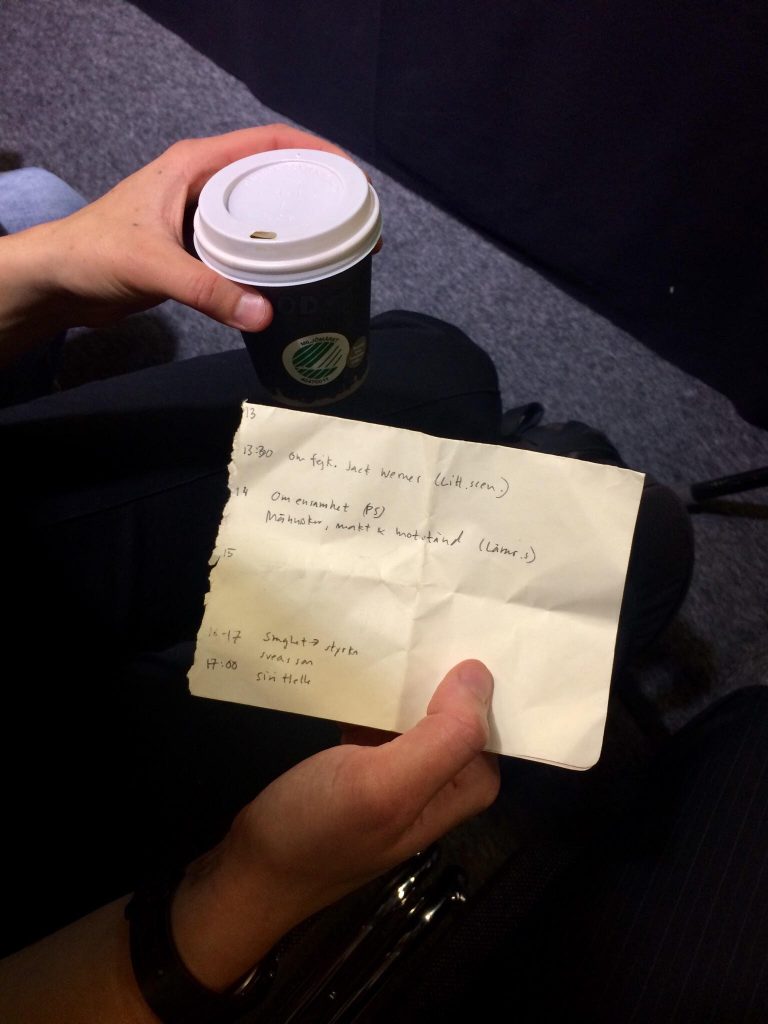 MILJÖMÄRKT
13
13:30 Om fejk. Jack Werner (Litt.scen.)
14 Om ensamhet (PS)
Människor, makt & motstånd (Lärar.s)
15
16-17 Svaghet → styrka
Svensson
17:00 Siri Helle